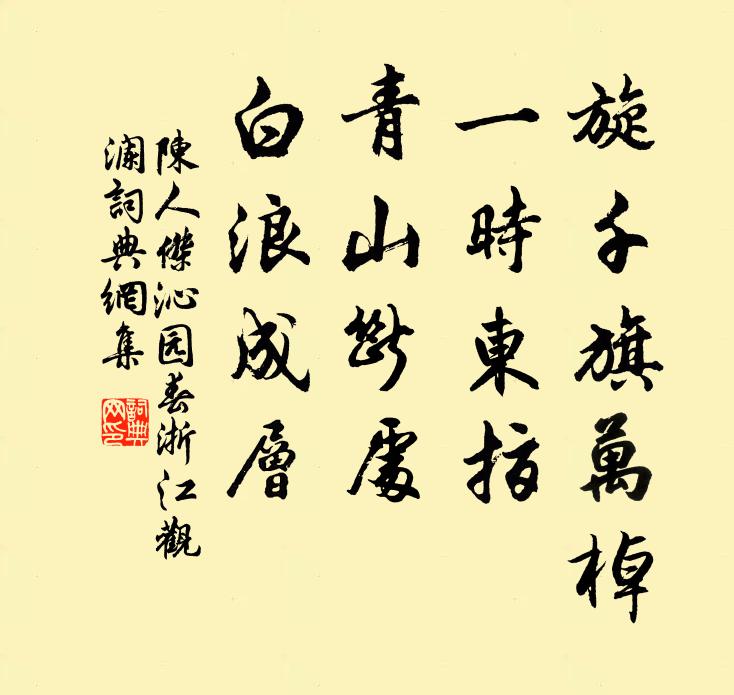 旋千旗萬棹
一時東指
青山斷處
白浪成層
陳人傑沁园春浙江觀
澜詞典網集
詞典網印